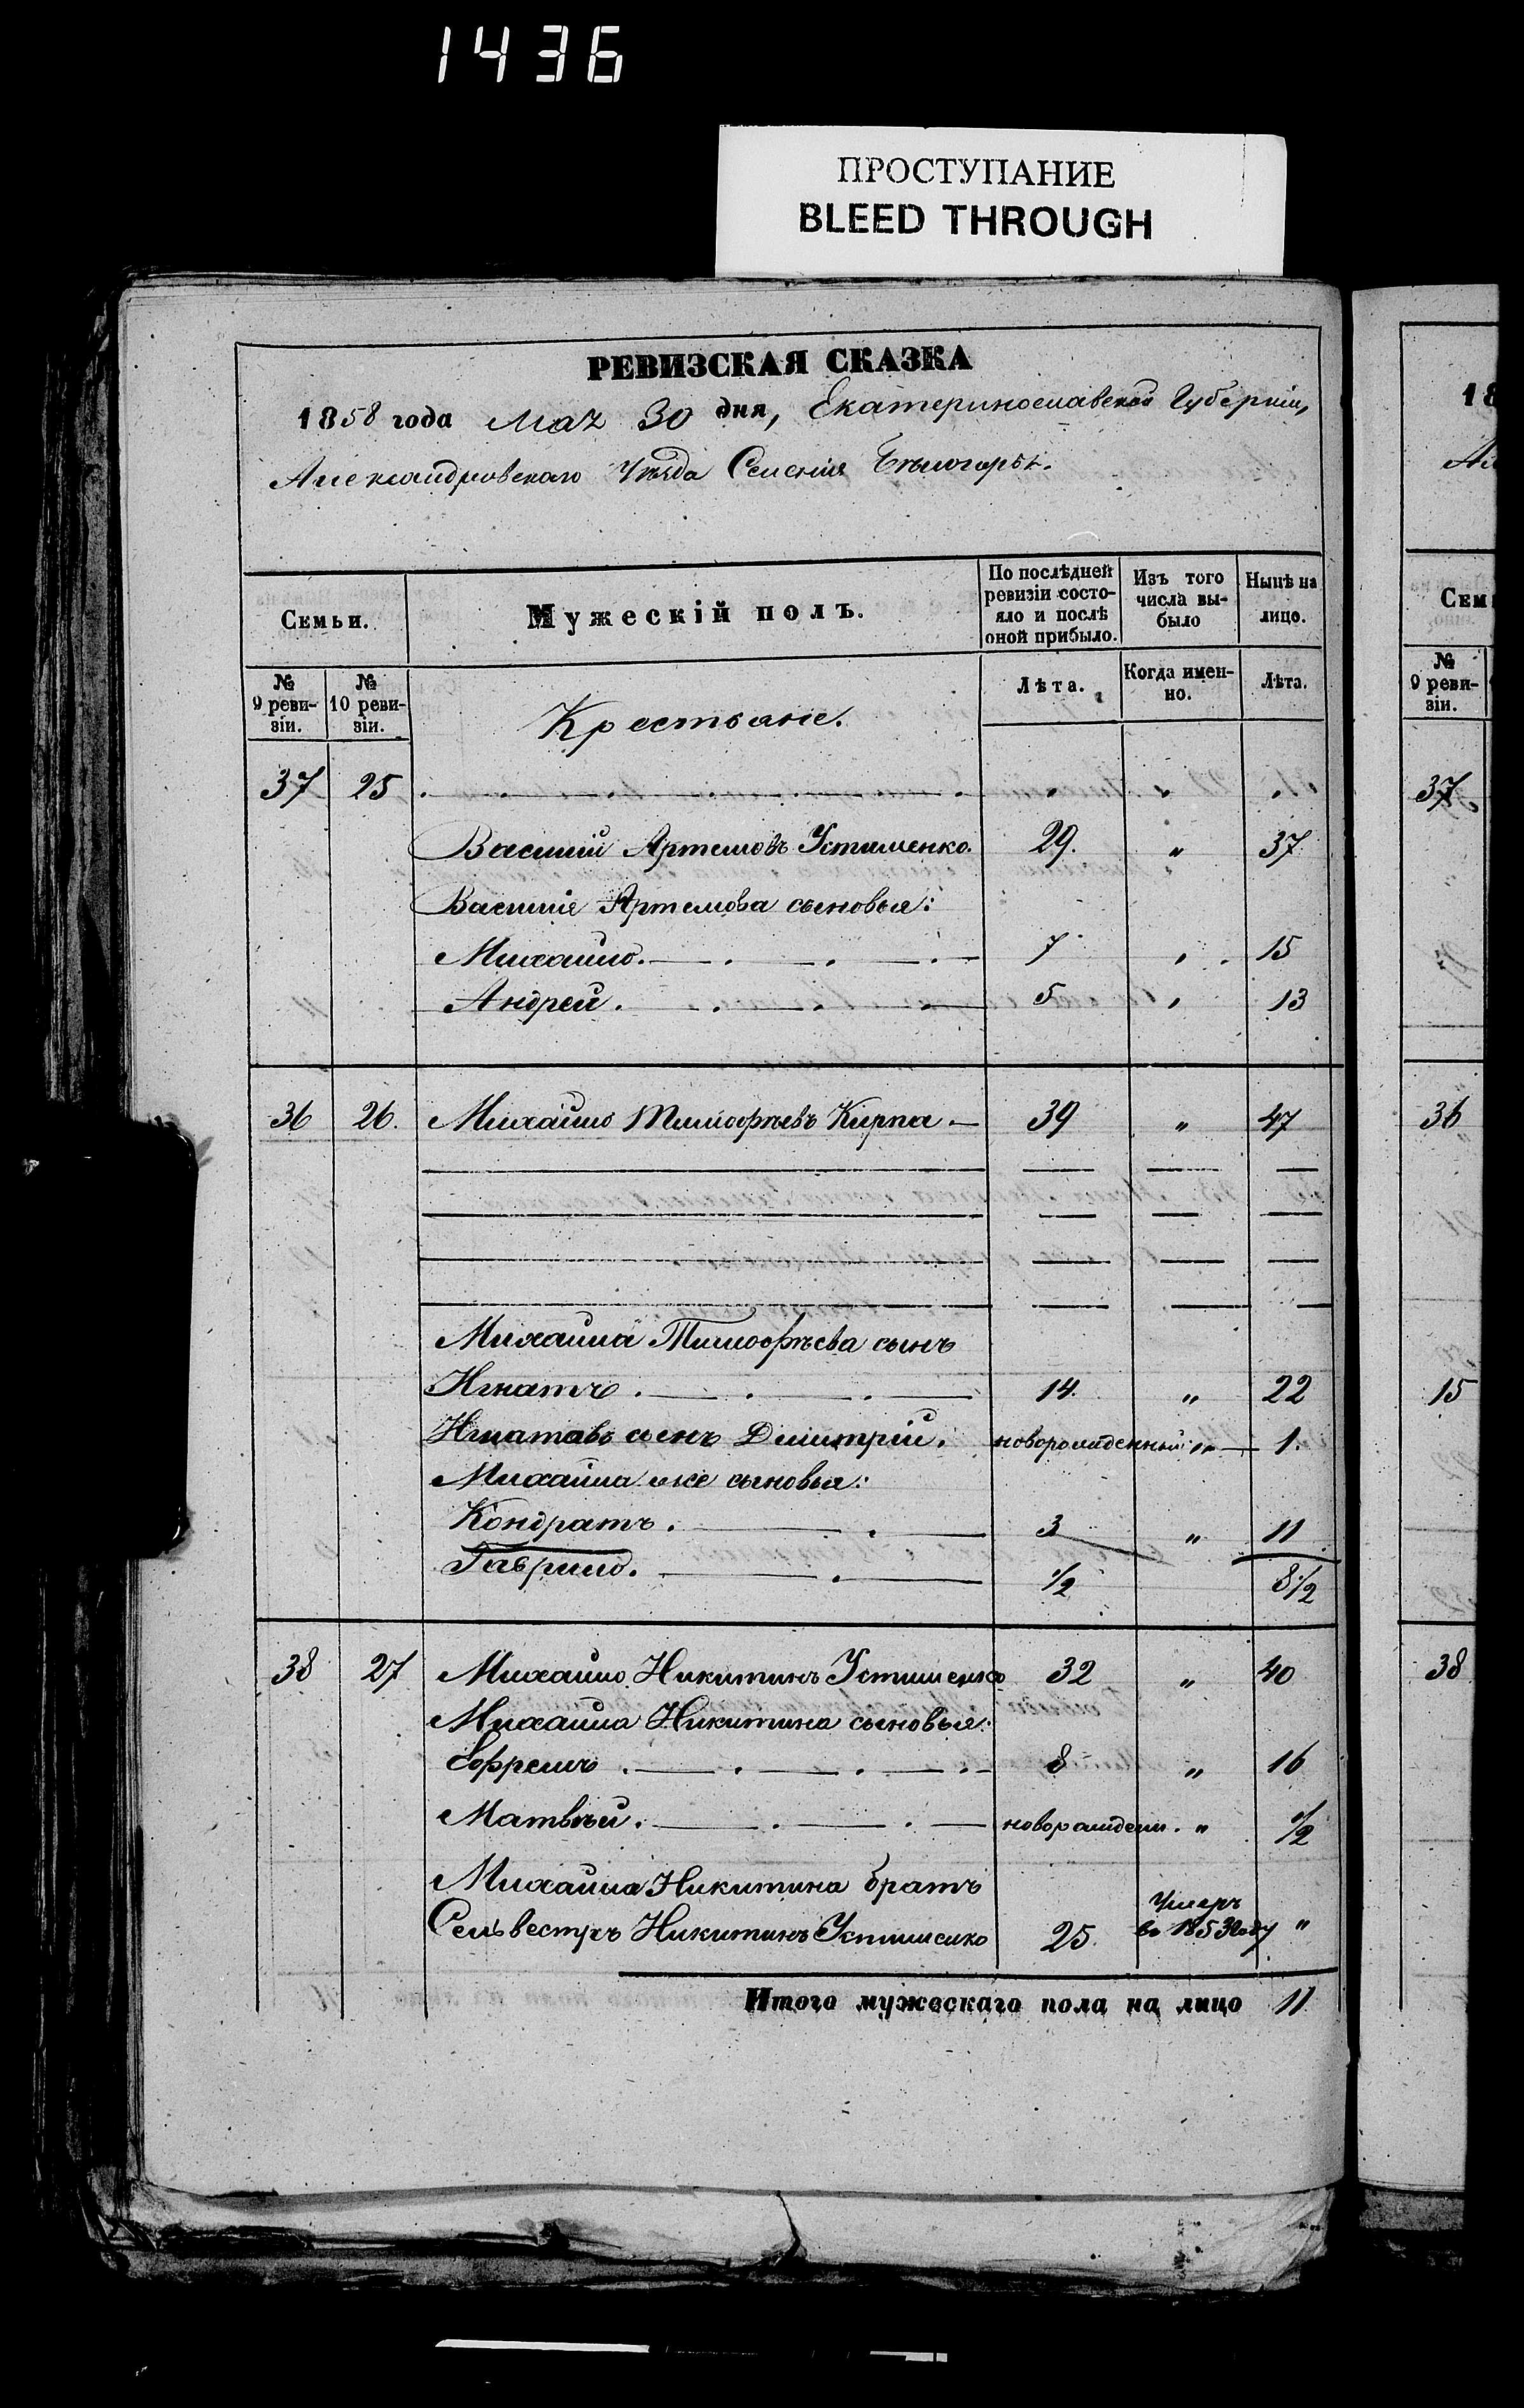 1436
ПРОСТУПАНИЕ
BLEED THROUGH
РЕВИЗСКАЯ СКАЗКА
1858 года Мая 30 дня, Екатеринославской Губерніи,
Александровскаго Уѣзда Селенія Бѣлогорья.
Семьи.
Мужескій полъ.
По послѣдней ревизіи состояло и послѣ оной прибыло.
Изъ того числа выбыло
Нынѣ на лицо.
№ 9 ревизіи.
№ 10 ревизіи.
Крестьяне.
Лѣта.
Когда именно.
Лѣта.
37 25 " " "
Василій Артемовъ Устименко. 29. " 37
Василія Артемова сыновья:
Михайло. 7 " 15
Андрей. 5 " 13
36 26. Михайло Тимофѣевъ Кирпа 39 " 47
Михайла Тимофѣева сынъ
Игнатъ. 14. " 22
Игнатавъ сынъ Димитрій. новорожденный " 1.
Михайла же сыновья:
Кондратъ. 3 " 11
Гаврило. 1/2 8 1/2
38 27 Михайло Никитинъ Устименко 32 " 40
Михайла Никитина сыновья:
Ефремъ. 8 " 16
Матвѣй. новорожден. " 1/2
Михайла Никитина братъ
Сельвестръ Никитинъ Устименко 25. Умеръ в 1853 году "
Итого мужескаго пола на лицо 11
18
Ал
Сем
№ 9 ревизіи.
37
36
15
38